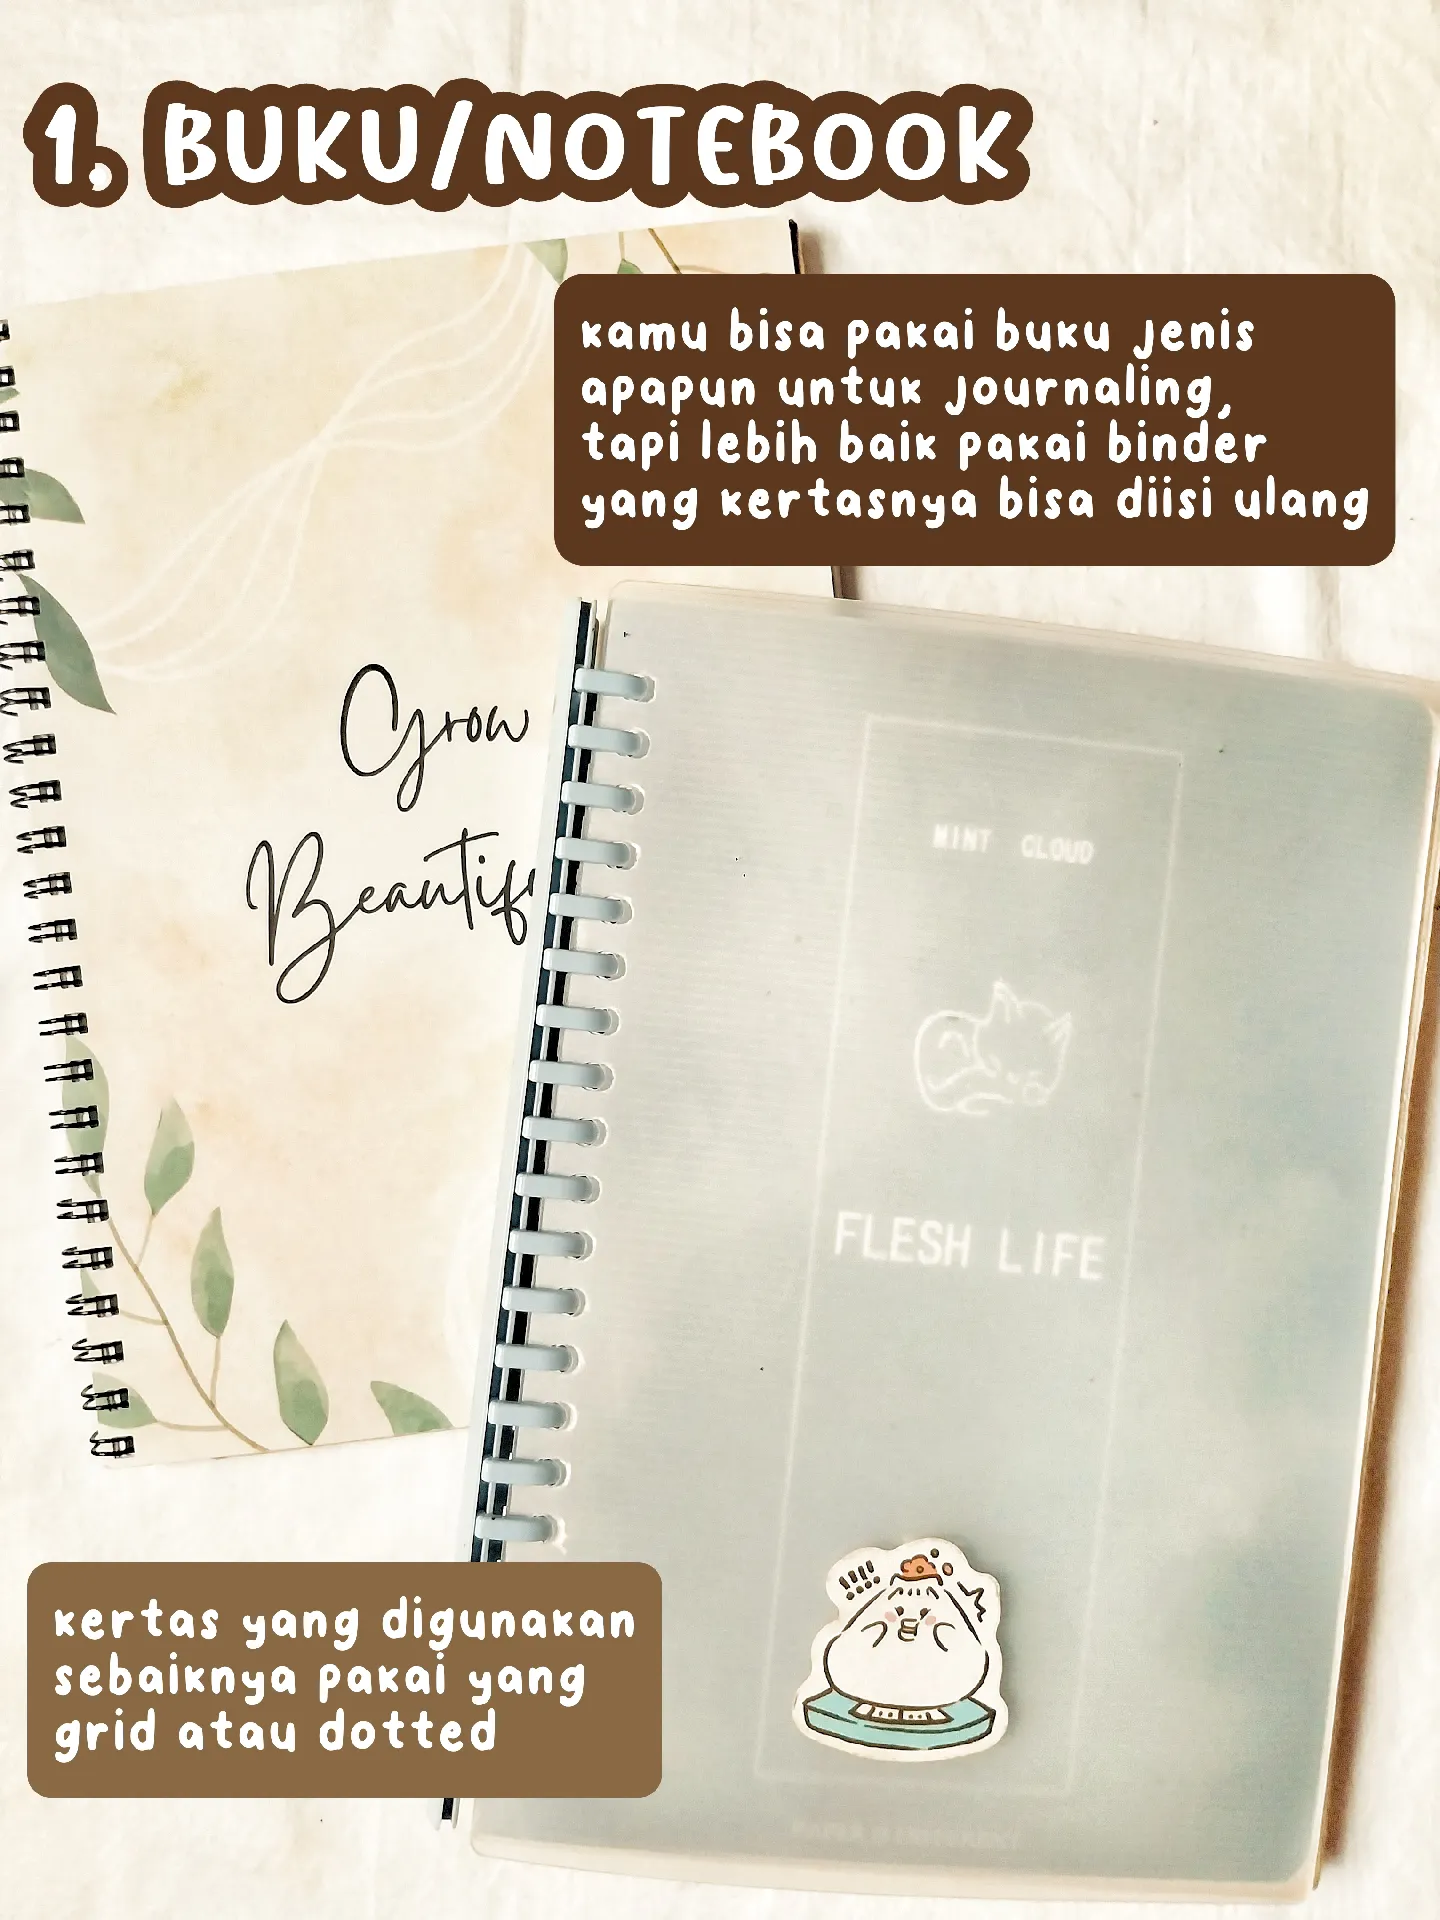 1. BUKU/NOTEBOOK
kamu bisa pakai buku jenis
apapun untuk journaling,
tapi lebih baik pakai binder
yang kertasnya bisa diisi ulang
Grow
MINT CLOUD
FLESH LIFE
!!!!
kertas yang digunakan
sebaiknya pakai yang
grid atau dotted